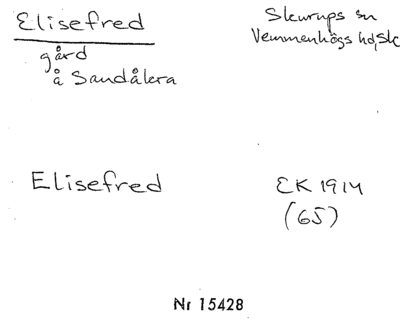 Elisefred
gård
å Sandåkra
Skurups sn
Vemmenhögs hd, Sk
Elisefred
EK 1914
(65)
Nr 15428